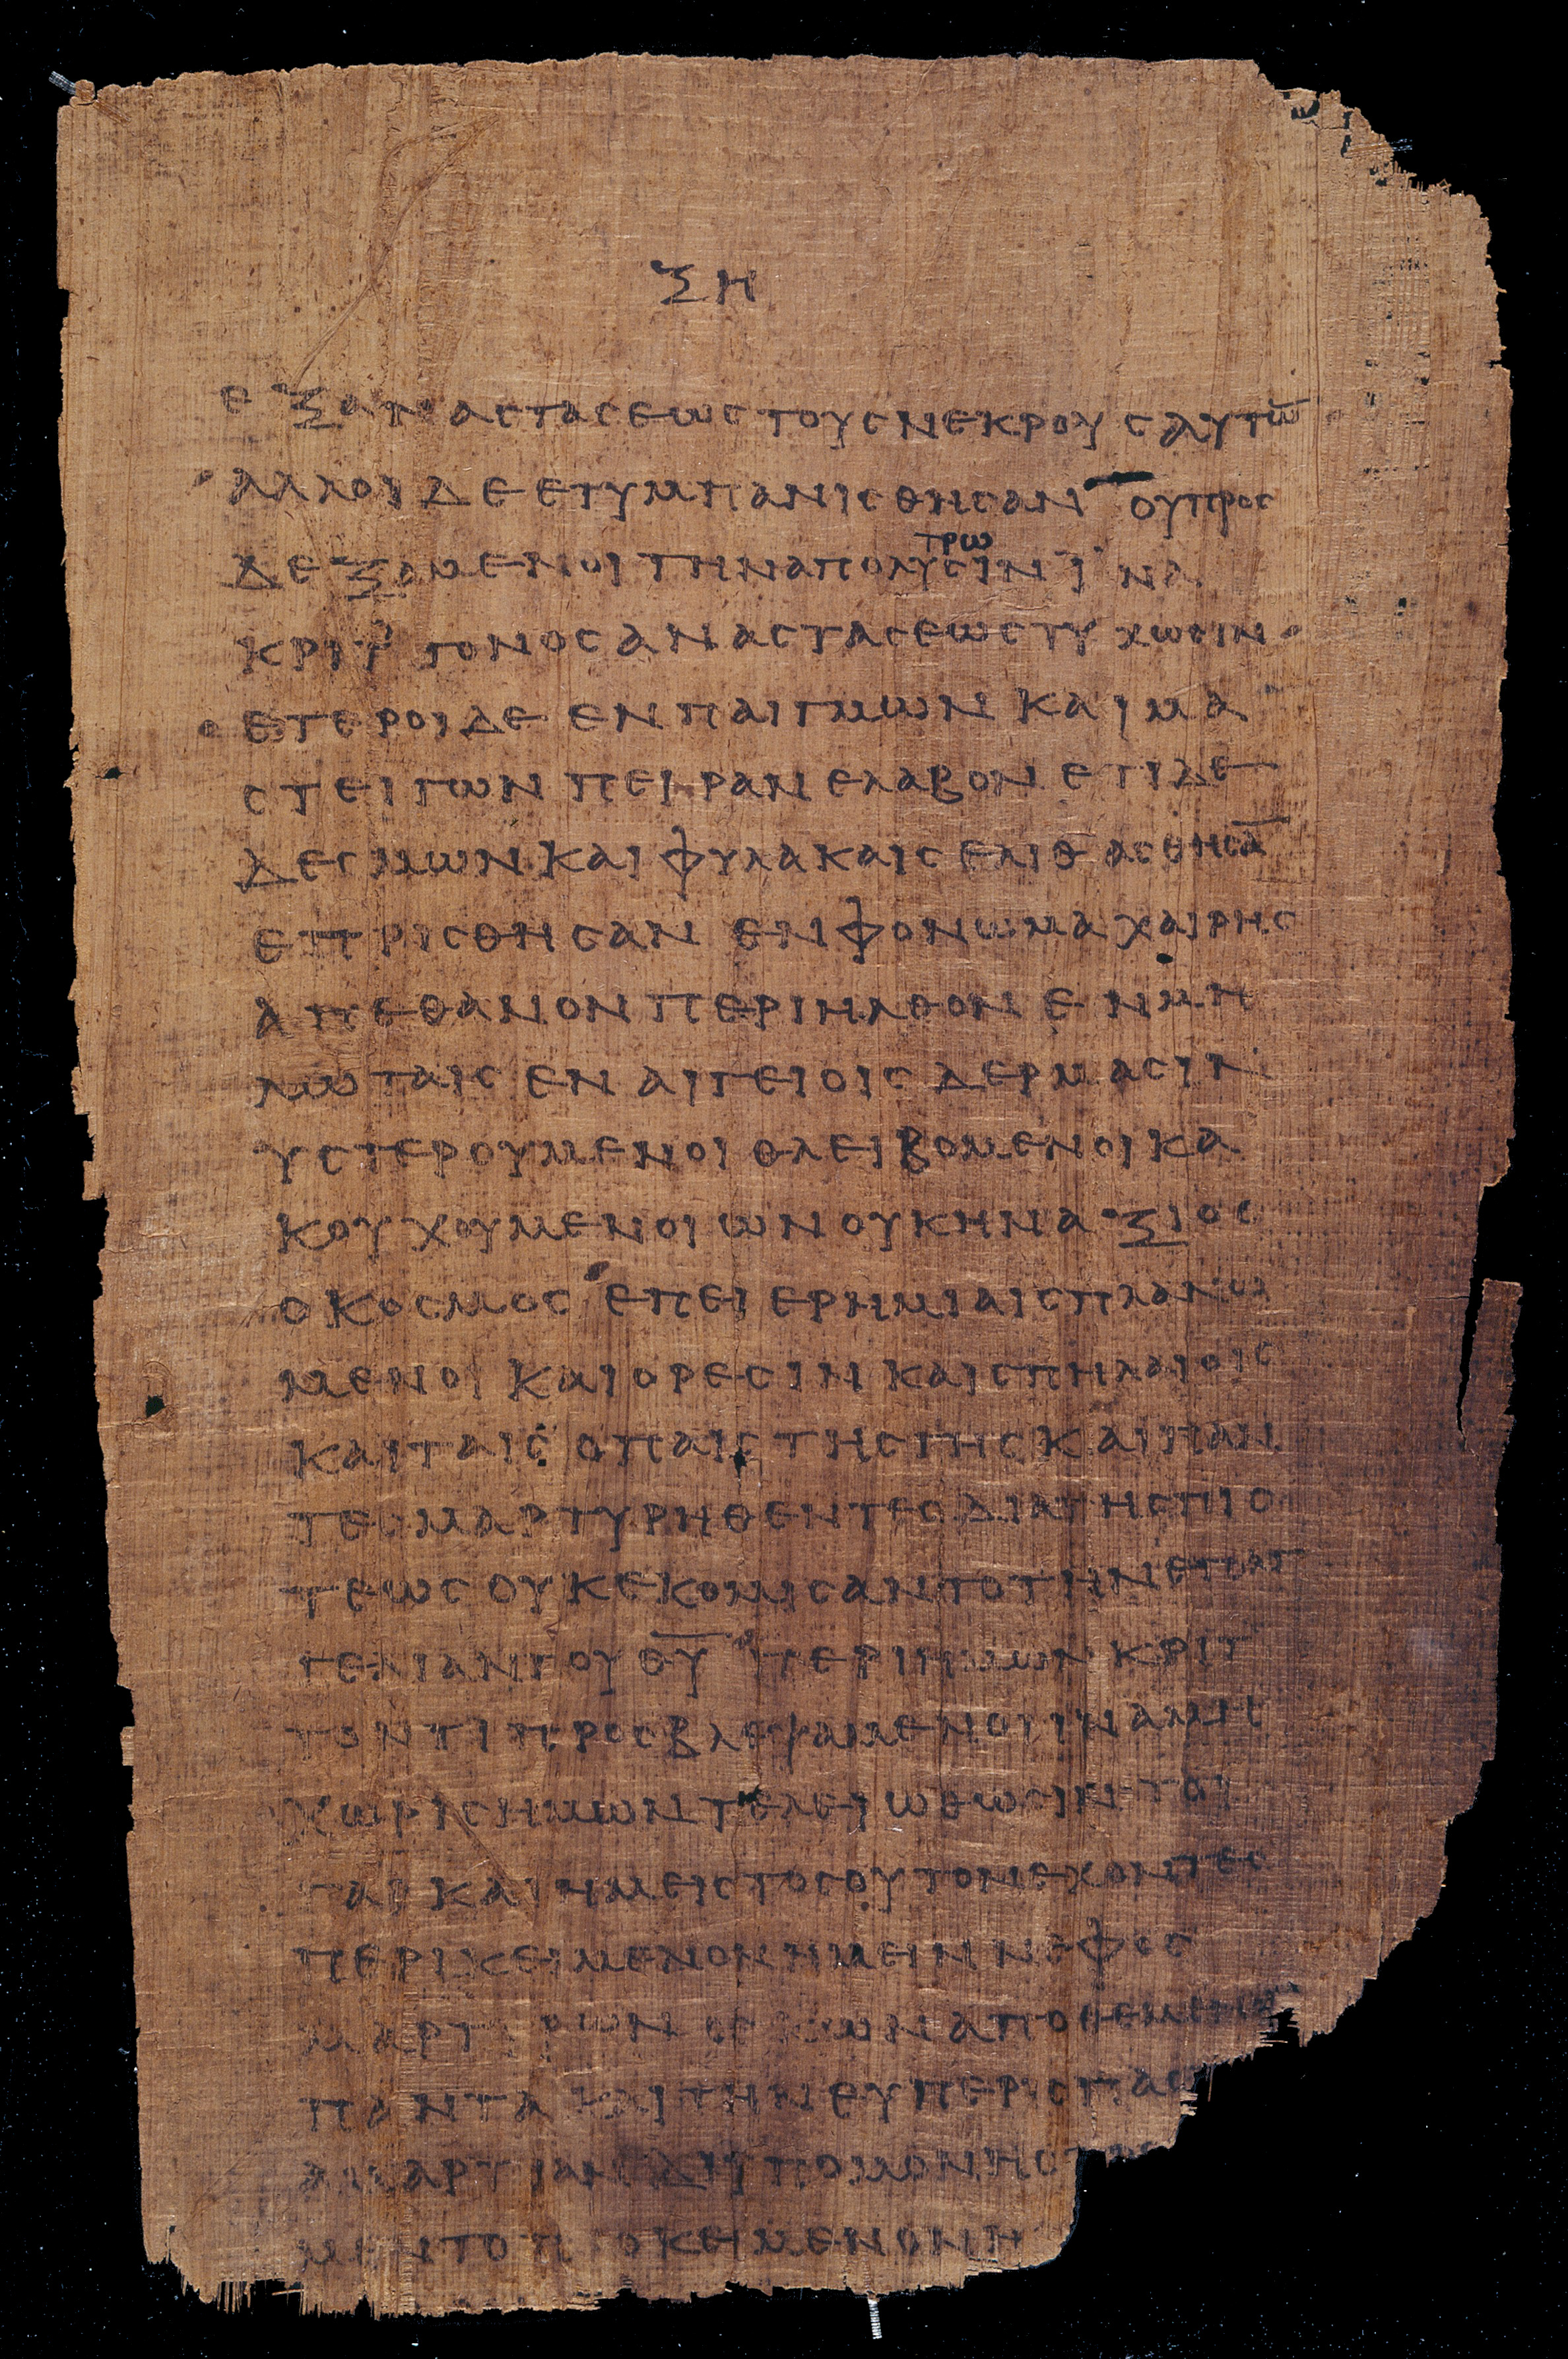 ΞΗ
ΕΞΑΝΑCΤΑCΕΩCΤΟΥCΝΕΚΡΟΥCΑΥΤΩ̅
ΑΛΛΟΙΔΕΕΤΥΜΠΑΝΙCΘΗCΑΝ ΟΥΠΡΟC
ΤΡΩ
ΔΕΞΑΜΕΝΟΙΤΗΝΑΠΟΛΥCΙΝΪΝΑ
ΚΡΙΤΤΟΝΟCΑΝΑCΤΑCΕΩCΤΥΧΩCΙΝ·
ΕΤΕΡΟΙΔΕ ΕΝΠΑΙΓΜΩΝ ΚΑΙΜΑ
CΤΕΙΓΩΝ ΠΕΙΡΑΝ ΕΛΑΒΟΝ ΕΤΙΔΕ
ΔΕCΜΩΝ ΚΑΙ ΦΥΛΑΚΑΙC ΕΛΙΘΑCΘΗCΑ̅
ΕΠΡΙCΘΗCΑΝ ΕΝΦΟΝΩΜΑΧΑΙΡΗC
ΑΠΕΘΑΝΟΝ ΠΕΡΙΗΛΘΟΝ ΕΝΜΗ
ΛΩΤΑΙC ΕΝ ΑΙΓΕΙΟΙC ΔΕΡΜΑCΙΝ
ΥCΤΕΡΟΥΜΕΝΟΙ ΘΛΕΙΒΟΜΕΝΟΙ ΚΑ
ΚΟΥΧΟΥΜΕΝΟΙ ΩΝ ΟΥΚΗΝΑΞΙΟC
ΟΚΟCΜΟC ΕΠΕΙ ΕΡΗΜΙΑΙCΠΛΑΝΩ
ΜΕΝΟΙ ΚΑΙΟΡΕCΙΝ ΚΑΙCΠΗΛΑΙΟΙC
ΚΑΙΤΑΙC ΟΠΑΙC ΤΗCΓΗC ΚΑΙΠΑΝ
ΤΕCΜΑΡΤΥΡΗΘΕΝΤΕC ΔΙΑΤΗCΠΙC
ΤΕΩC ΟΥΚΕΚΟΜΙCΑΝΤΟΤΗΝΕΠΑΓ
ΓΕΛΙΑΝΤΟΥ Θ̅Υ̅ ΠΕΡΙΗΜΩΝ ΚΡΙΤ
ΤΟΝΤΙ ΠΡΟCΒΛΕΨΑΜΕΝΟΙΙΝΑΜΗ
ΧΩΡΙCΗΜΩΝΤΕΛΕΙΩΘΩCΙΝ ΤΟΙ
ΓΑΡ ΚΑΙΗΜΕΙCΤΟCΟΥΤΟΝΕΧΟΝΤΕC
ΠΕΡΙΚΕΙΜΕΝΟΝΗΜΕΙΝ ΝΕΦΟC
ΜΑΡΤΥΡΩΝ ΟΓΚΩΝΑΠΟΘΕΜΕΝΟΙ
ΠΑΝΤΑ ΚΑΙΤΗΝΕΥΠΕΡΙCΠΑC
ΑΜΑΡΤΙΑΝ ΔΙΥΠΟΜΟΝΗCΤΡΕ
ΜΕΝΤΟΠΡΟΚΕΙΜΕΝΟΝΗ